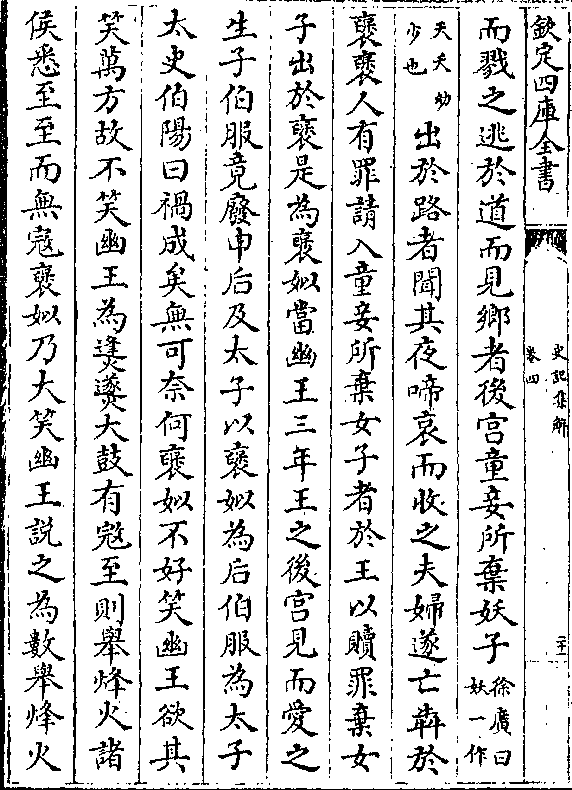 欽定四庫全書
史記集解
卷四
二十一
而戮之逃於道而見鄉者後宮童妾所棄妖子徐廣曰妖一作
夭夭幼少也出於路者聞其夜啼哀而收之夫婦遂亡犇於
襃襃人有罪請入童妾所棄女子者於王以贖罪棄女
子出於襃是為襃姒當幽王三年王之後宮見而愛之
生子伯服竟廢申后及太子以襃姒為后伯服為太子
太史伯陽曰禍成矣無可奈何襃姒不好笑幽王欲其
笑萬方故不笑幽王為㷭燧大鼓有寇至則舉烽火諸
侯悉至至而無寇襃姒乃大笑幽王説之為數舉烽火